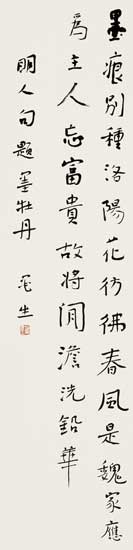 墨痕別種洛陽花彷彿春風是魏家應
為主人忘富貴故將閒澹洗鉛華
明人句題墨牡丹 生